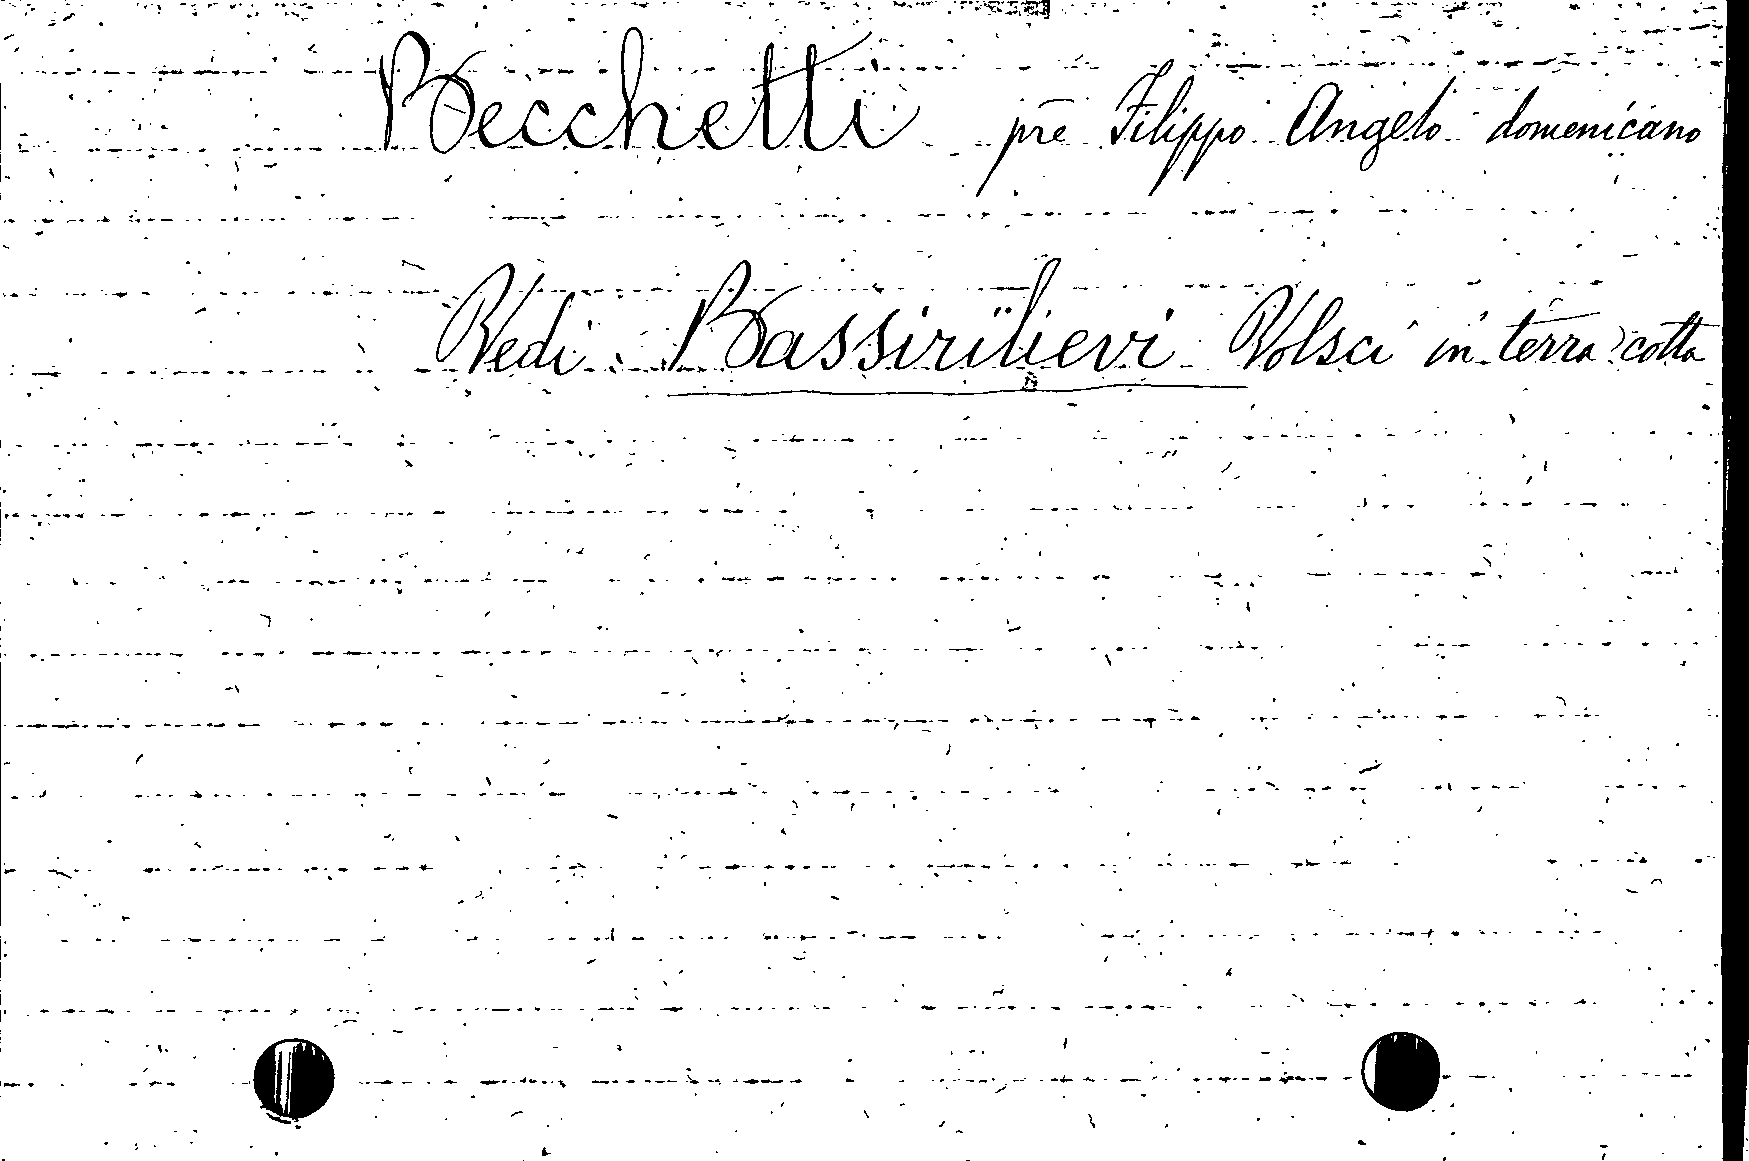 Becchetti prē Filippo Angelo domenicano
Vedi: Bassirilievi Volsci in terra cotta